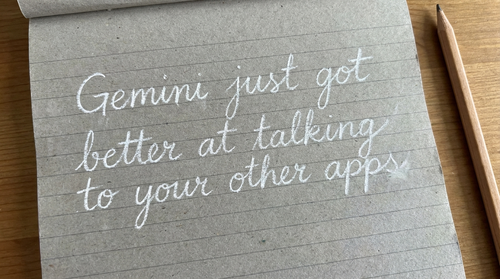 Gemini just got
better at talking
to your other apps